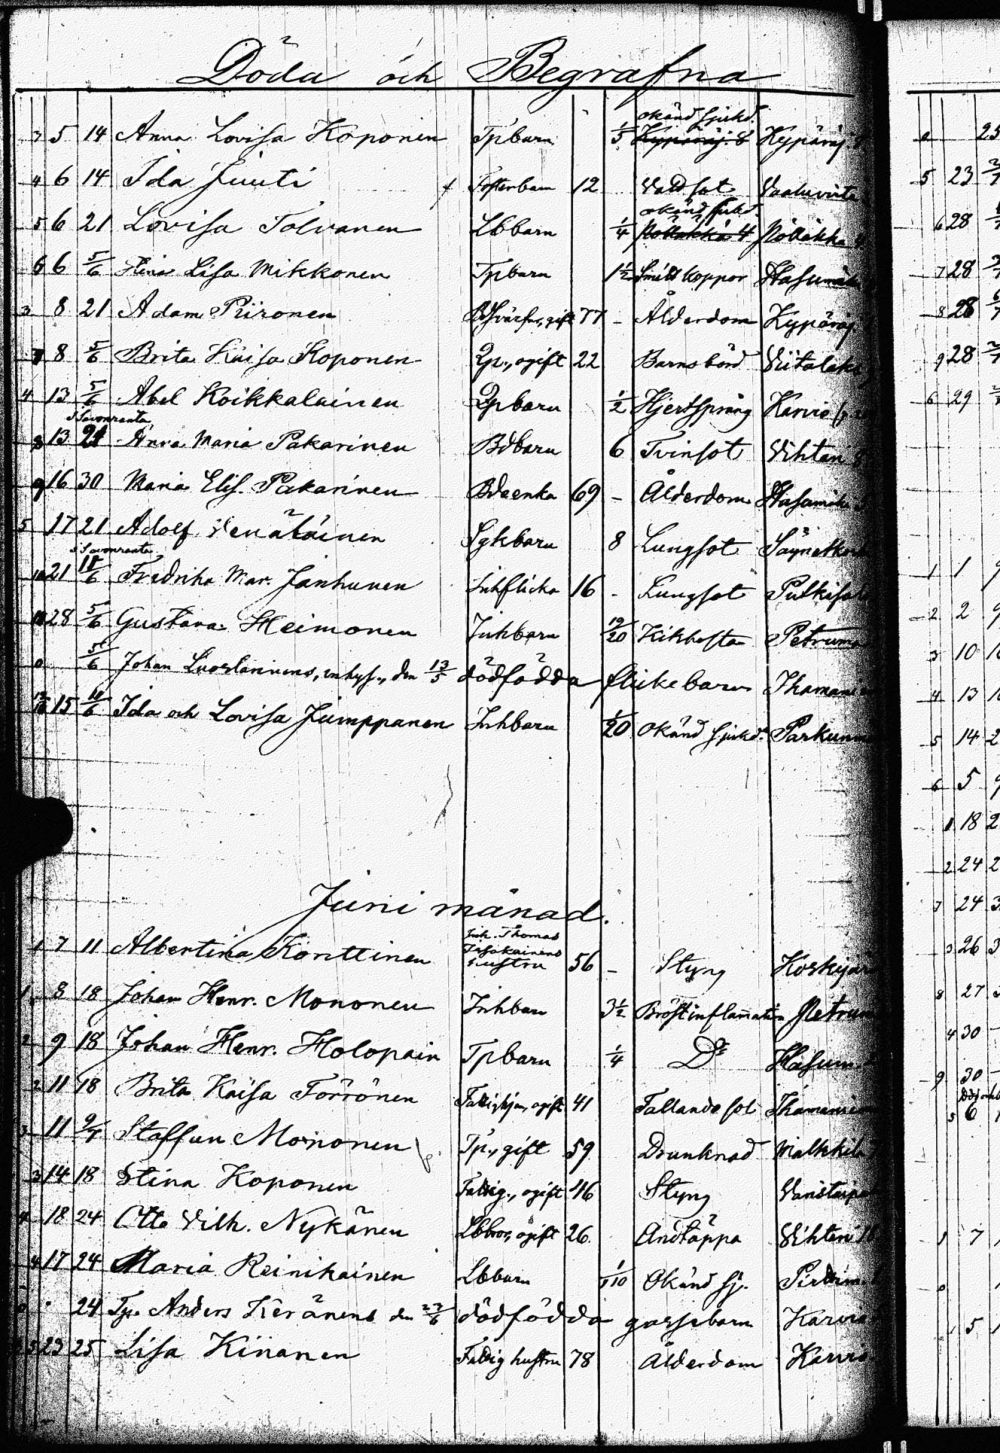 Döda och Begrafna
okänd sjukd.
5 14 Anna Lovisa Koponen Tpbarn 1/5 Kypäräj. 8 Kypäräj
4 6 14 Ida Juuti Fosterbarn 12
okänd sjukd.
5 6 21 Lovisa Tolvanen Lbbarn 1/4 Pölläkkä 4 Pölläkkä 4
6 6 5/6 Stina Lisa Mikkonen Tpbarn 1 1/2 Smitt koppor Hasumäk
3 8 21 Adam Piironen 77 - Ålderdom Kypäräj
8 5/6 Brita Kaisa Koponen Qp., ogift 22 Barnsbörd Viitalaks
4 13 5/6 Abel Koikkalainen Qpbarn 1/2 Hjertsprång Karvio
i Savonranta
8 13 21 Anna Maria Pakarinen Bdbarn 6 Tvinsot Vihtari
9 16 30 Maria Elis. Pakarinen Bdeenka 69 - Ålderdom Hasumäk
5 17 21 Adolf Venäläinen Sykbarn 8 Lungsot Säynetkos
i Savonranta
10 21 11/6 Fredrika Mar. Janhunen Inhflicka 16 - Lungsot
28 5/6 Gustava Heimonen Inhbarn 19/20 Kikhosta Petruma
5/6 Johan den 13/5 dödfödda flickebarn Thamani
15 11/6 Ida och Lovisa Jumppanen Inhbarn 1/20 okänd sjukd. Parkunm
Juni månad.
Inh. Thomas
1 7 11 Albertina Konttinen hustru 56 - Styng Koskijär
1 8 18 Johan Henr. Mononen Inhbarn 3 1/2 Bröstinflammation Petrum
2 9 18 Johan Henr. Holopain Tpbarn 1/4 Do Hasum
2 11 18 Brita Kaisa Törrönen Fattighjon, ogift 41 Fallandesot Thamanien
3 11 2/7 Staffan Moinonen Tp., gift 59 Drunknad Malkkila
3 14 18 Stina Koponen Fattig., ogift 46 Styng Varistaipa
4 18 24 Otto Vilh. Nykänen Lbbror, ogift 26 Andtäppa Vihtari 16
4 17 24 Maria Reinikainen Lbbarn 1/10 Okänd sj.
24 Tp. Anders Keränens den 23/6 dödfödda gossebarn Karvio
23 25 Lisa Kinanen Fattig hustru 78 Ålderdom Karvio
25
5 23
6 28
7 28
8 28
9 28
6 29
1 1 9
2 2 9
3 10
4 13
5 14 2
6 5 9
1 18 2
2 24 2
3 24 3
3 26 3
8 27
4 30 -
9 30 -
5 6
1 7
5